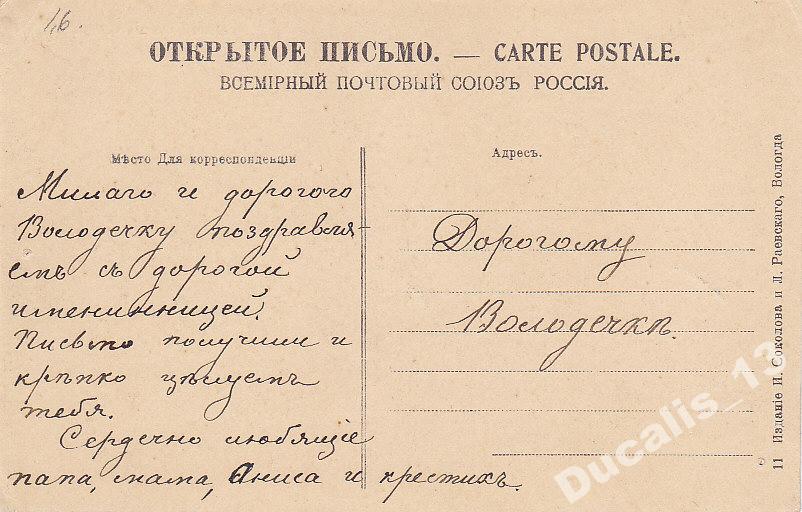 16.
ОТКРЫТОЕ ПИСЬМО. — CARTE POSTALE.
ВСЕМІРНЫЙ ПОЧТОВЫЙ СОЮЗЪ РОССІЯ.
Мѣсто Для корреспонденціи
Милаго и дорогого
Володечку поздравля-
емъ съ дорогой
именинницей.
Письмо получили и
крѣпко цѣлуемъ
тебя.
Сердечно любящіе
папа, мама, Аниса и крестикъ.
Адресъ.
Дорогому
Володечкѣ.
11 Изданіе И. Соколова и Л. Раевскаго, Вологда
Ducalis_13